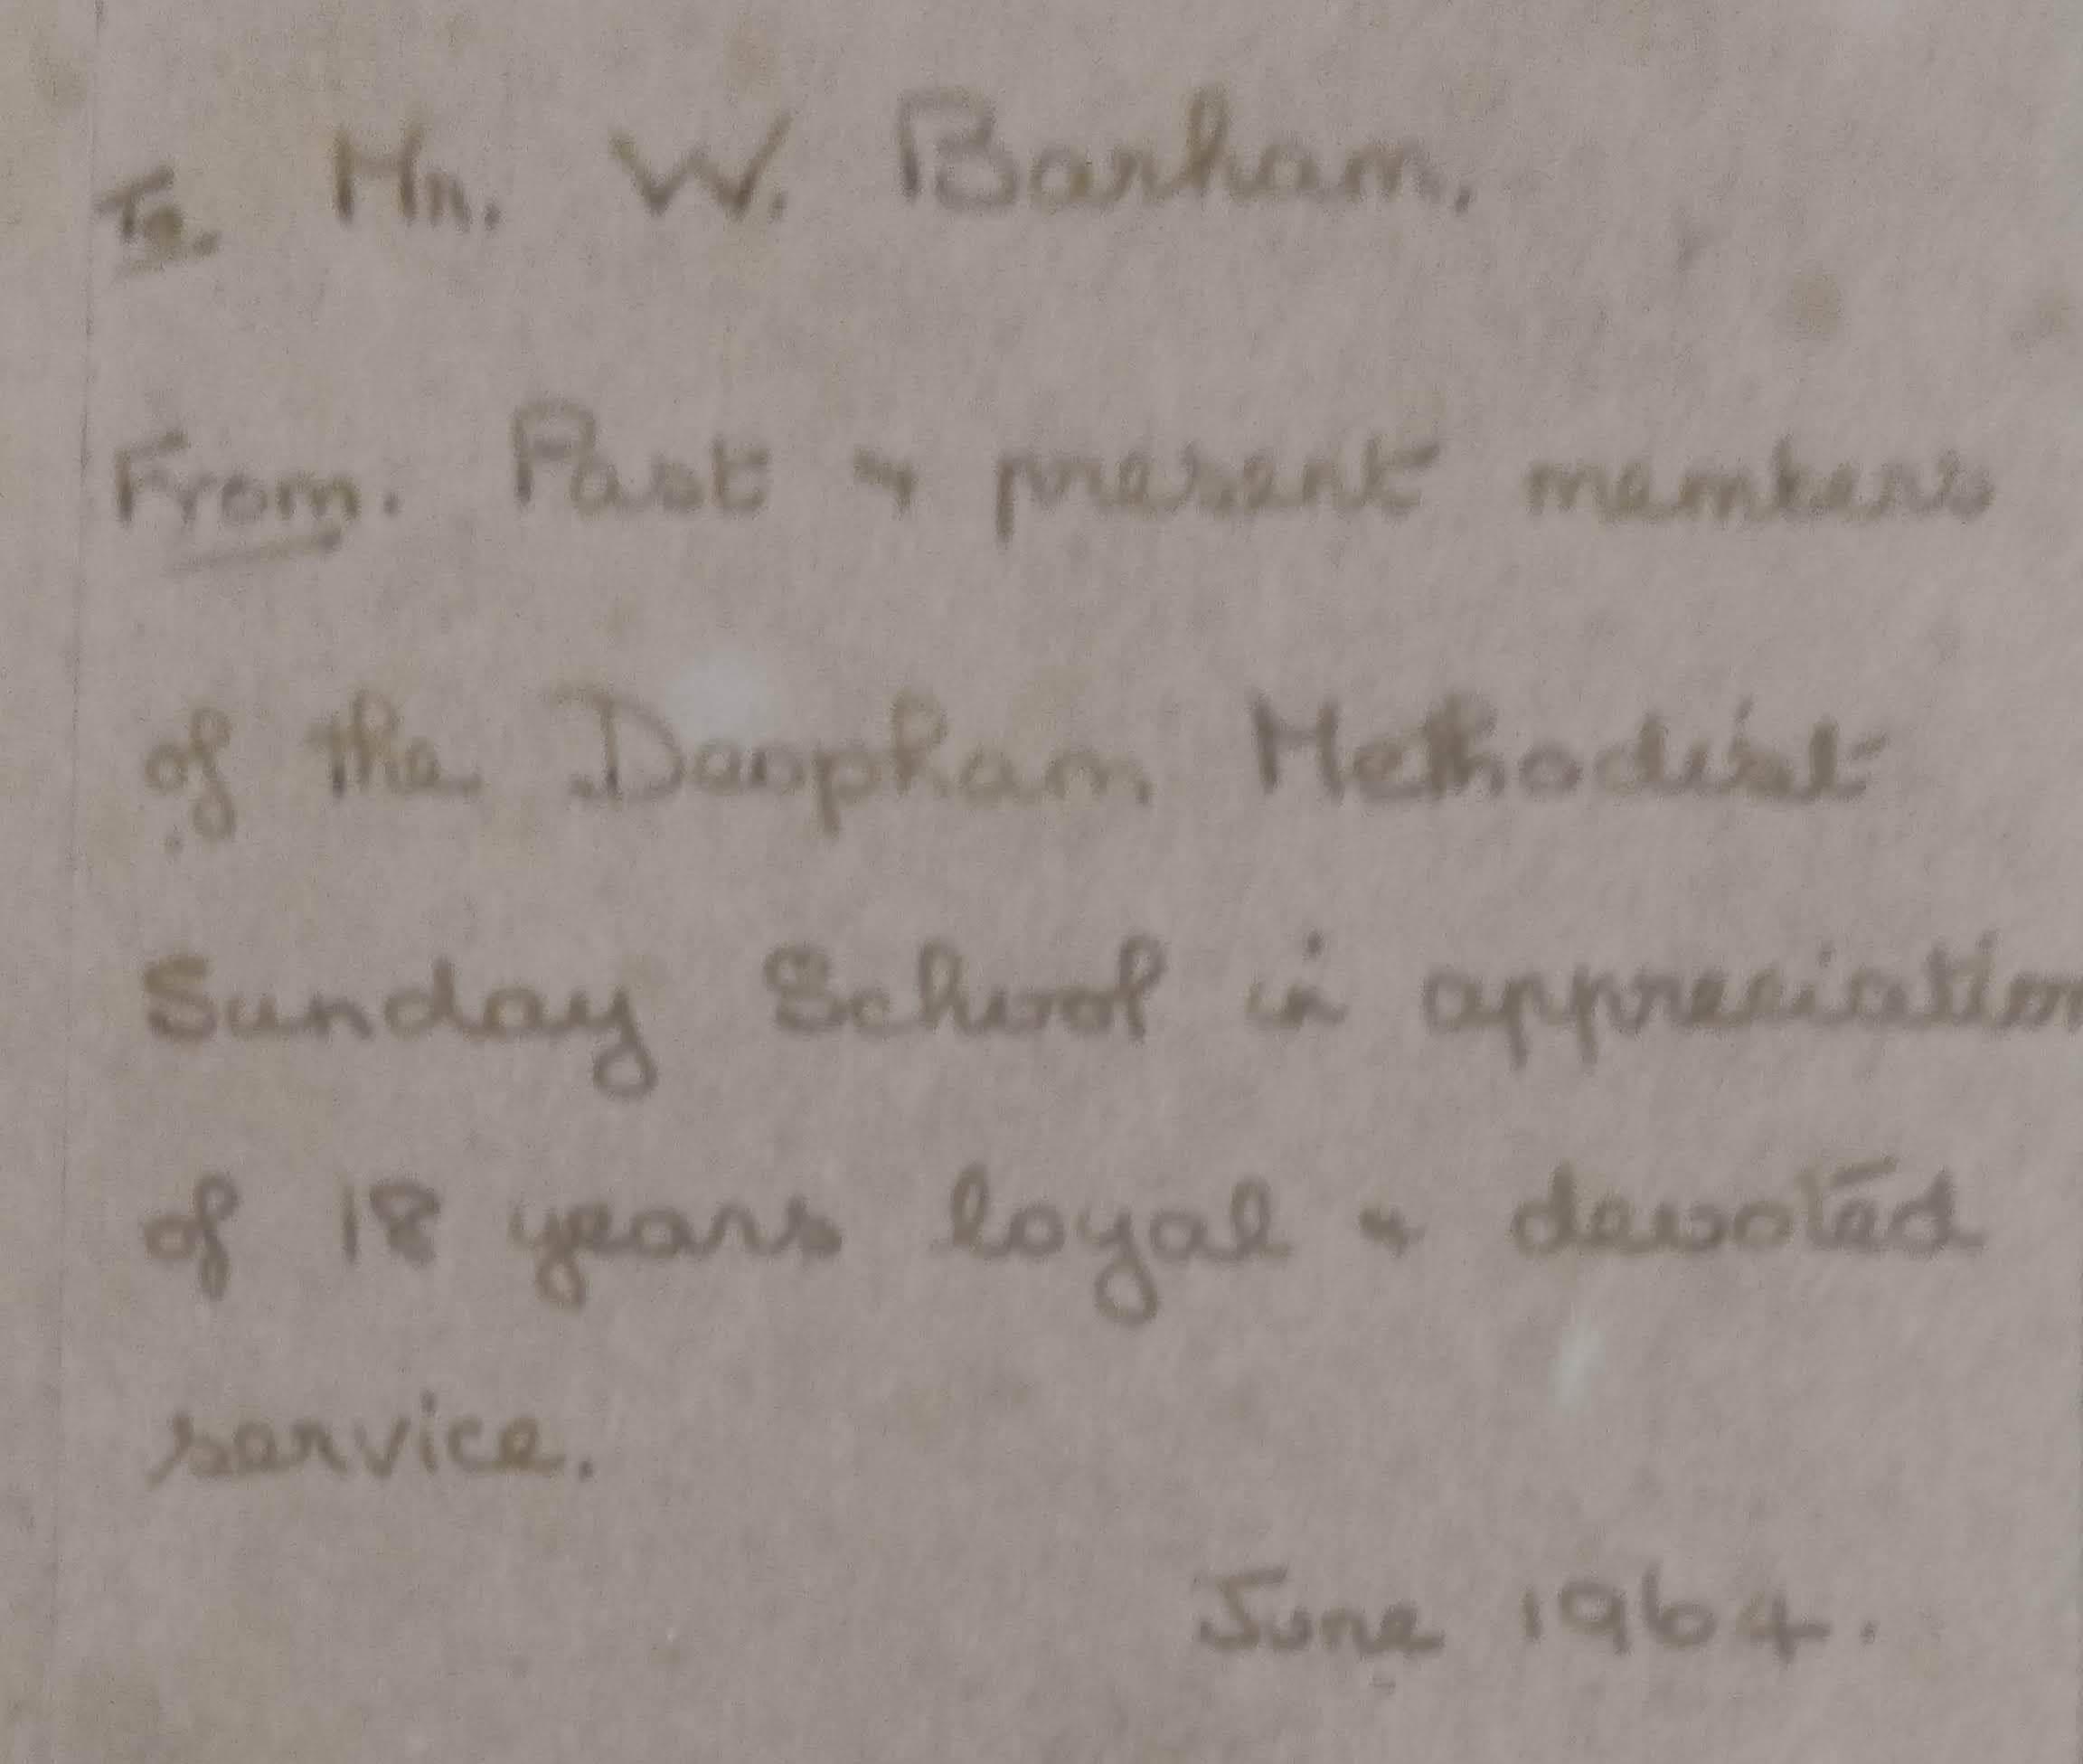 To. Mr. W. Barham.
From. Past & present members
of the Deopham Methodist
Sunday School in appreciation
of 18 years loyal & devoted
service.
June 1964.